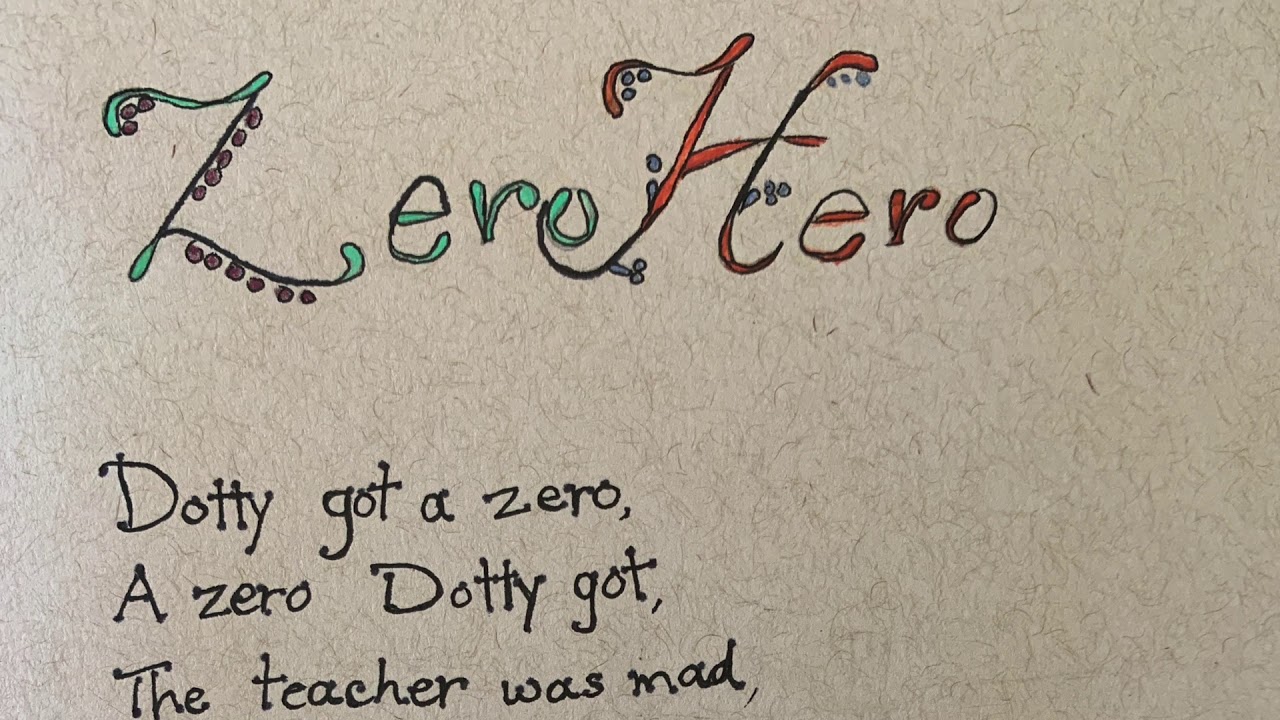 Zero Hero
Dotty got a zero,
A zero Dotty got,
The teacher was mad,